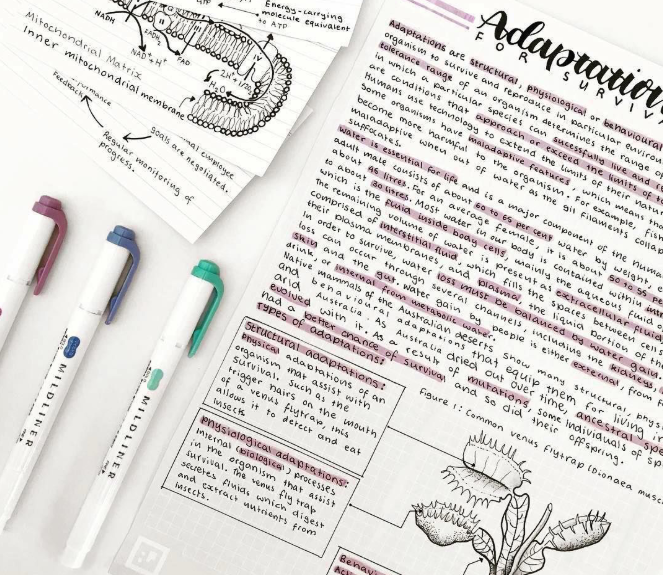 Energy-carrying
molecule equivalent
to ATP
ATP
NADH
NAD⁺+ H⁺
FADH₂
FAD
II
IV
2H⁺
H₂O
Mitochondrial Matrix
Inner mitochondrial membrane
Feedback
Regular monitoring of
progress.
Goals are negotiated.
employee
MILDLINER
MILDLINER
MILDLINER
Adaptation
FOR SURVIV
Adaptations are structural, physiological or behavioural
organism to survive and reproduce in particular
tolerance range of an organism determines the range of
in which a particular species can sucessfully live and
are conditions that approach or exceed the limits of
Humans use technology to extend the limits of their
Some organisms have maladaptive features, which means
become more harmful to the organism. For example, fish
maladaptive when out of water as the gill filaments
suffocates.
Water is essential for life and is a major component of the human
adult male consists of about 60 to 65 per cent water by weight,
to about 45 litres. For an average female, it is about 50 to 55 per
about 30 litres. Most water in our body is contained within
which is the fluid inside body cells, mainly the aqueous fluid
the remaining volume of water is present as extracellular fluid
comprised of interstitial fluid, which fills the spaces between
their plasma membranes, and plasma, the liquid portion of the
In order to survive, water loss must be balanced by water gain.
loss can occur through several channels, including the kidneys,
skin and the gut. Water gain by people is either external, from
drink, or internal from metabolic water.
Native mammals of the Australian deserts show many structural,
and behavioural adaptations that equip them for living in
arid Australia. As Australia dried out over time, ancestral
had a better chance of survival and so did their offspring.
evolved with it. As a result of mutations, some individuals of
Types of adaptations:
Structural adaptations:
Physical adaptations of an
organism that assist with
survival. such as the
trigger hairs on the mouth
of a venus flytrap, this
allows it to detect and eat
insects
Physiological adaptations:
Internal (biological) processes
in the organism that assist
survival. The venus fly trap
secretes fluids which digest
and extract nutrients from
insects.
Figure 1: Common venus flytrap (Dionaea
Behavi